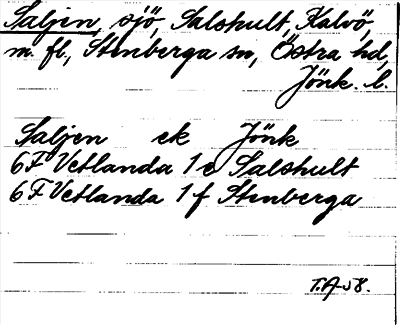 Saljen, sjö, Salshult, Kalvö,
m. fl., Stenberga sn, Östra hd,
Jönk. l.
Saljen ek Jönk
6F Vetlanda 1e Salshult
6F Vetlanda 1f Stenberga
T.A. 58.